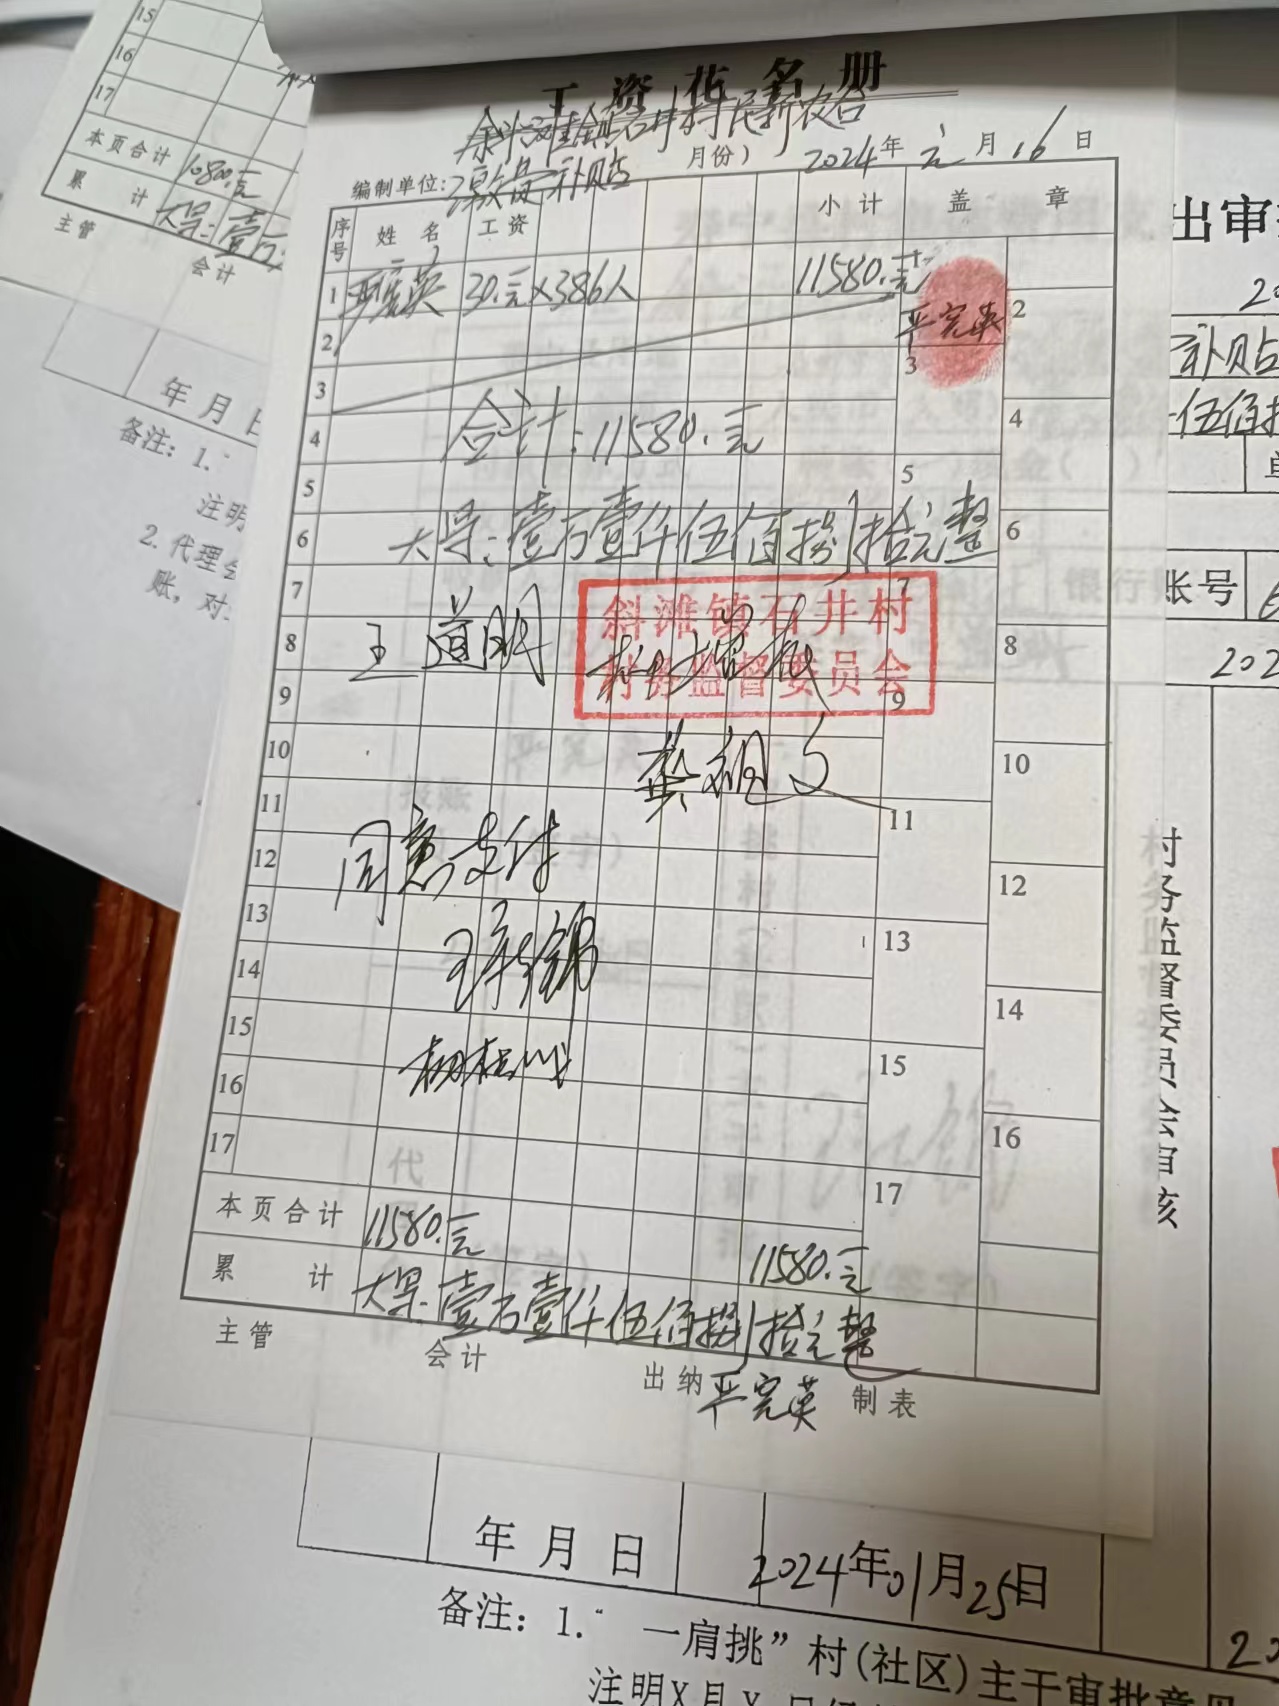 工资花名册
斜滩镇石井村民新农合
缴费补贴
月份）
2024年元月16日
编制单位:
序号 姓名 工资 小计 盖章
1 严完英 30.元×386人 11580.元
严完英
2
2
3
3
4
合计:11580.元
4
5
5
6
大写:壹万壹仟伍佰捌拾元整
6
7
7
斜滩镇石井村
村务监督委员会
8
王道明
8
9
9
10
龚祖文
10
11
11
12
同意支付
12
13
13
14
14
15
15
16
16
17
17
本页合计 11580.元 11580.元
累计 大写:壹万壹仟伍佰捌拾元整
主管 会计 出纳 严完英 制表
15
16
17
本页合计 10800.元
累计 大写:壹万
主管 会计
年月日
备注：1.
注明
2.代理会
账，对
出审
补贴
伍佰
账号
银行
村务监督委员会审核
年月日
2024年01月25日
备注：1.“一肩挑”村(社区)主干审批意见
注明X月X日